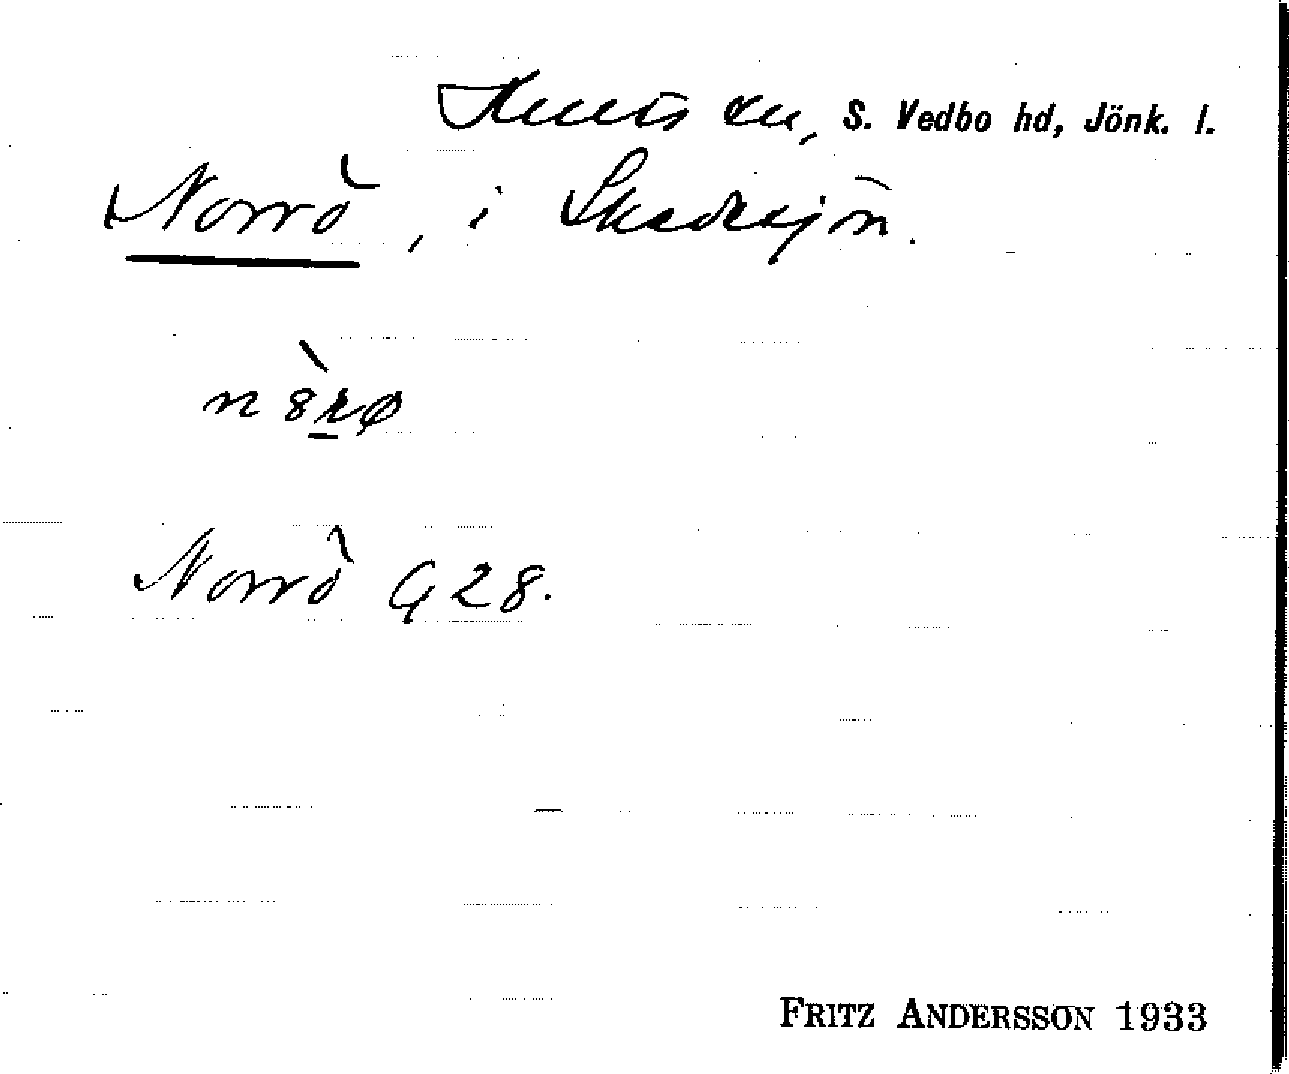 Hults sn, S. Vedbo hd, Jönk. l.
Norrö, i Skedesjön.
Norrö G 28.
FRITZ ANDERSSON 1933